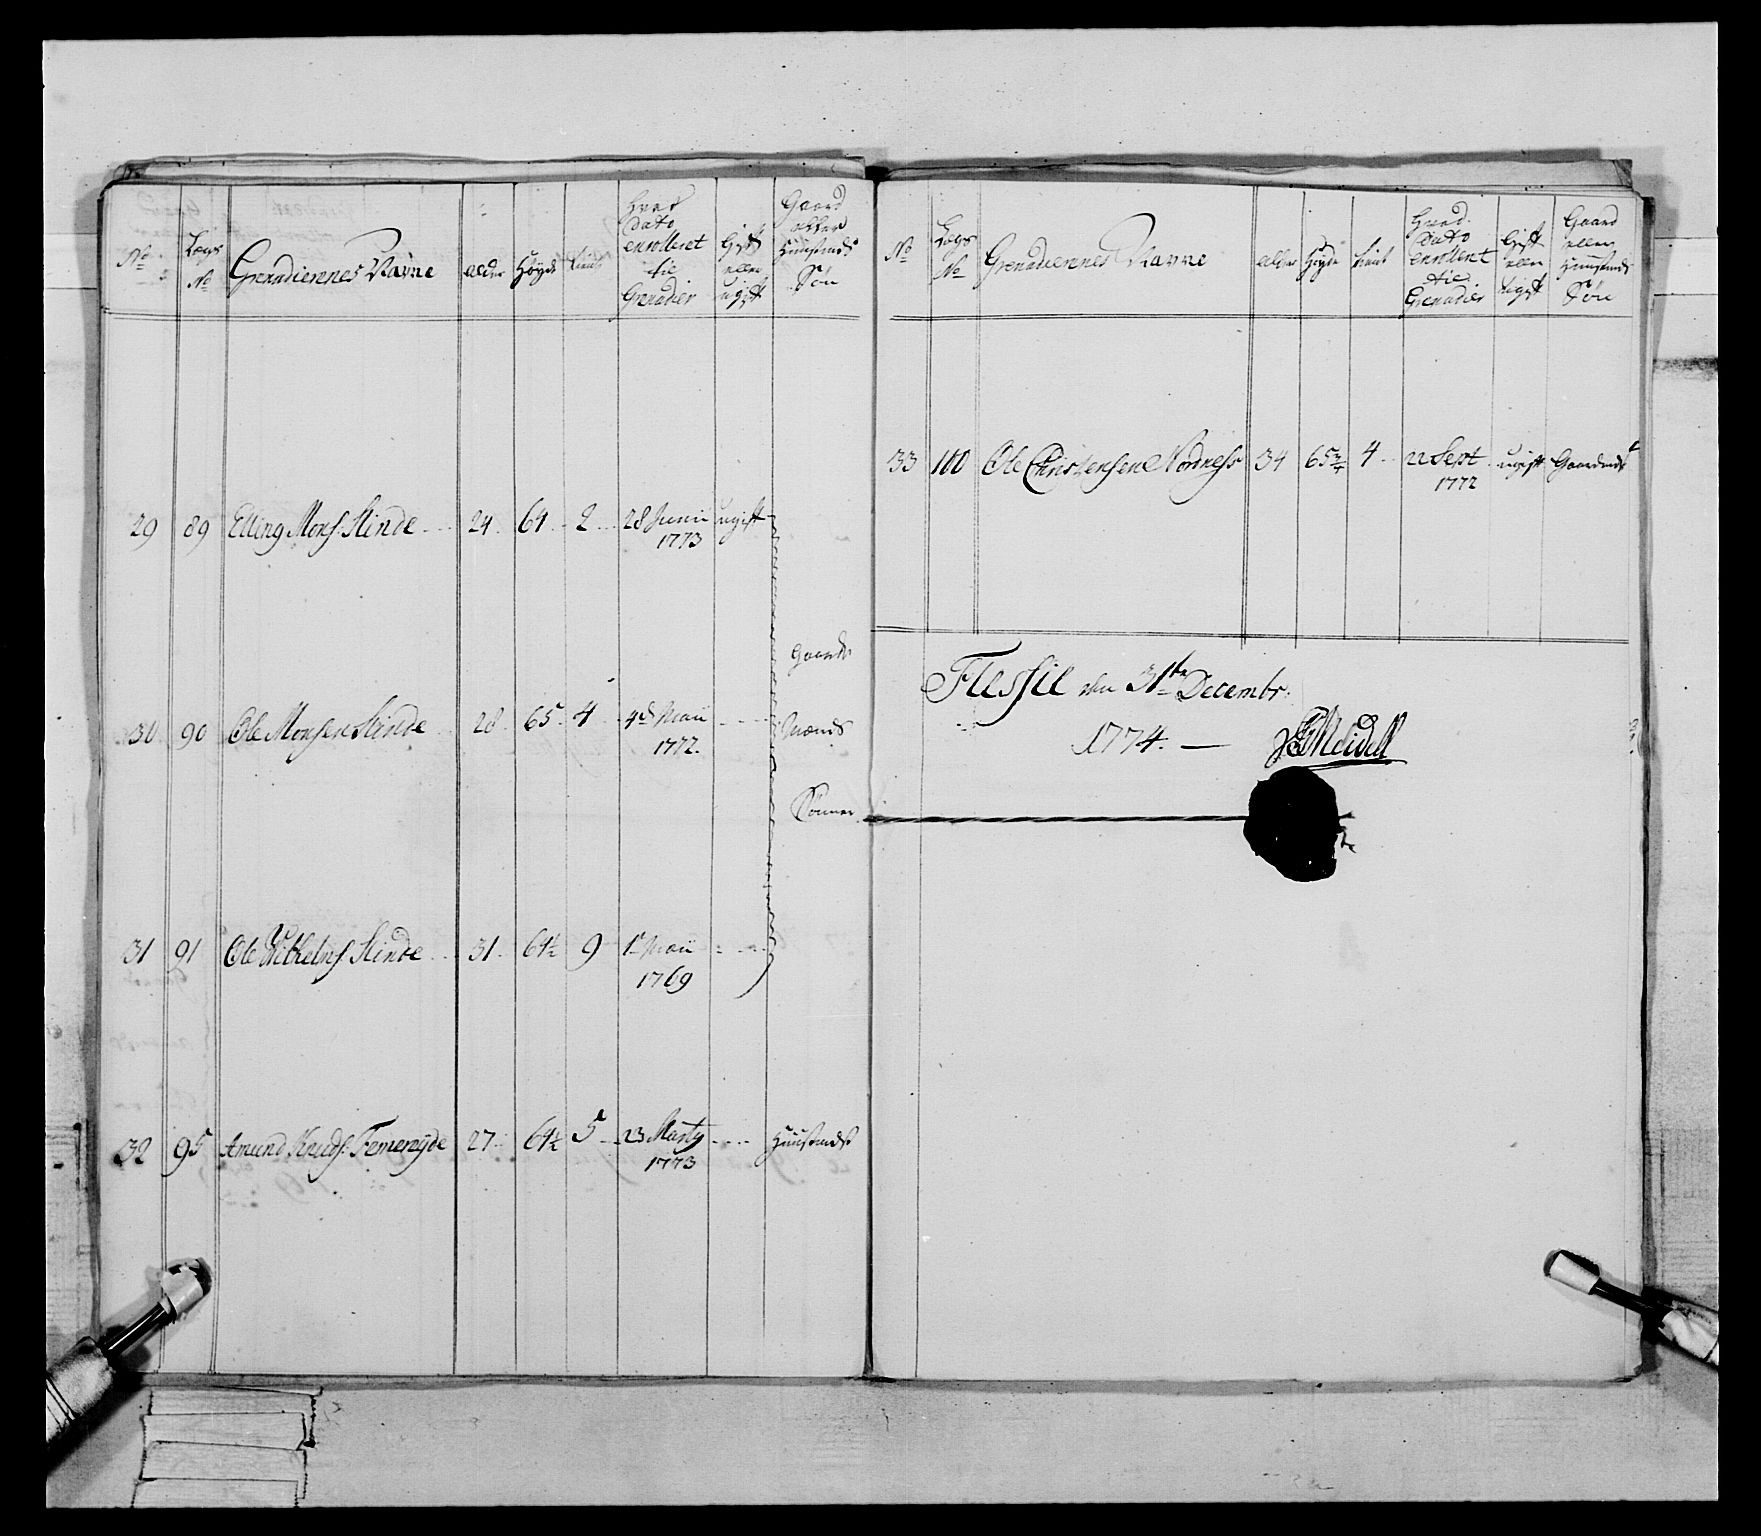 No
Lægs No
Grenadierernes Navne
alder
Høyde
tient
Hvad Dato enrolleret til Grenadier
Gift eller ugift
Gaard eller Huusmds Søn
29 89 Elling Mons. Slinde 24. 64. 2 28 Junii 1773 ugift
30 90 Ole Monsen Slinde 28 65. 4 4d Maii 1772.
Gaards
Mænds
Sönner
31 91 Ole Wilhelms. Slinde 31. 64½ 9 1. Maii 1769
32 95 Amund Knuds. Femereyde 27. 64½ 5 23 Marty 1773 Huusmds
No
Lægs No
Grenadierernes Navne
alder
Høyde
tient
Hvad Dato enrolleret til Grenadier
Gift eller ugift
Gaard eller Huusmds Søn
33 100 Ole Christensen Nordness 34 65¾ 4 22 Sept 1772 ugift Gaardmds
Flessie den 31te Decembr.
1774. — Meidell